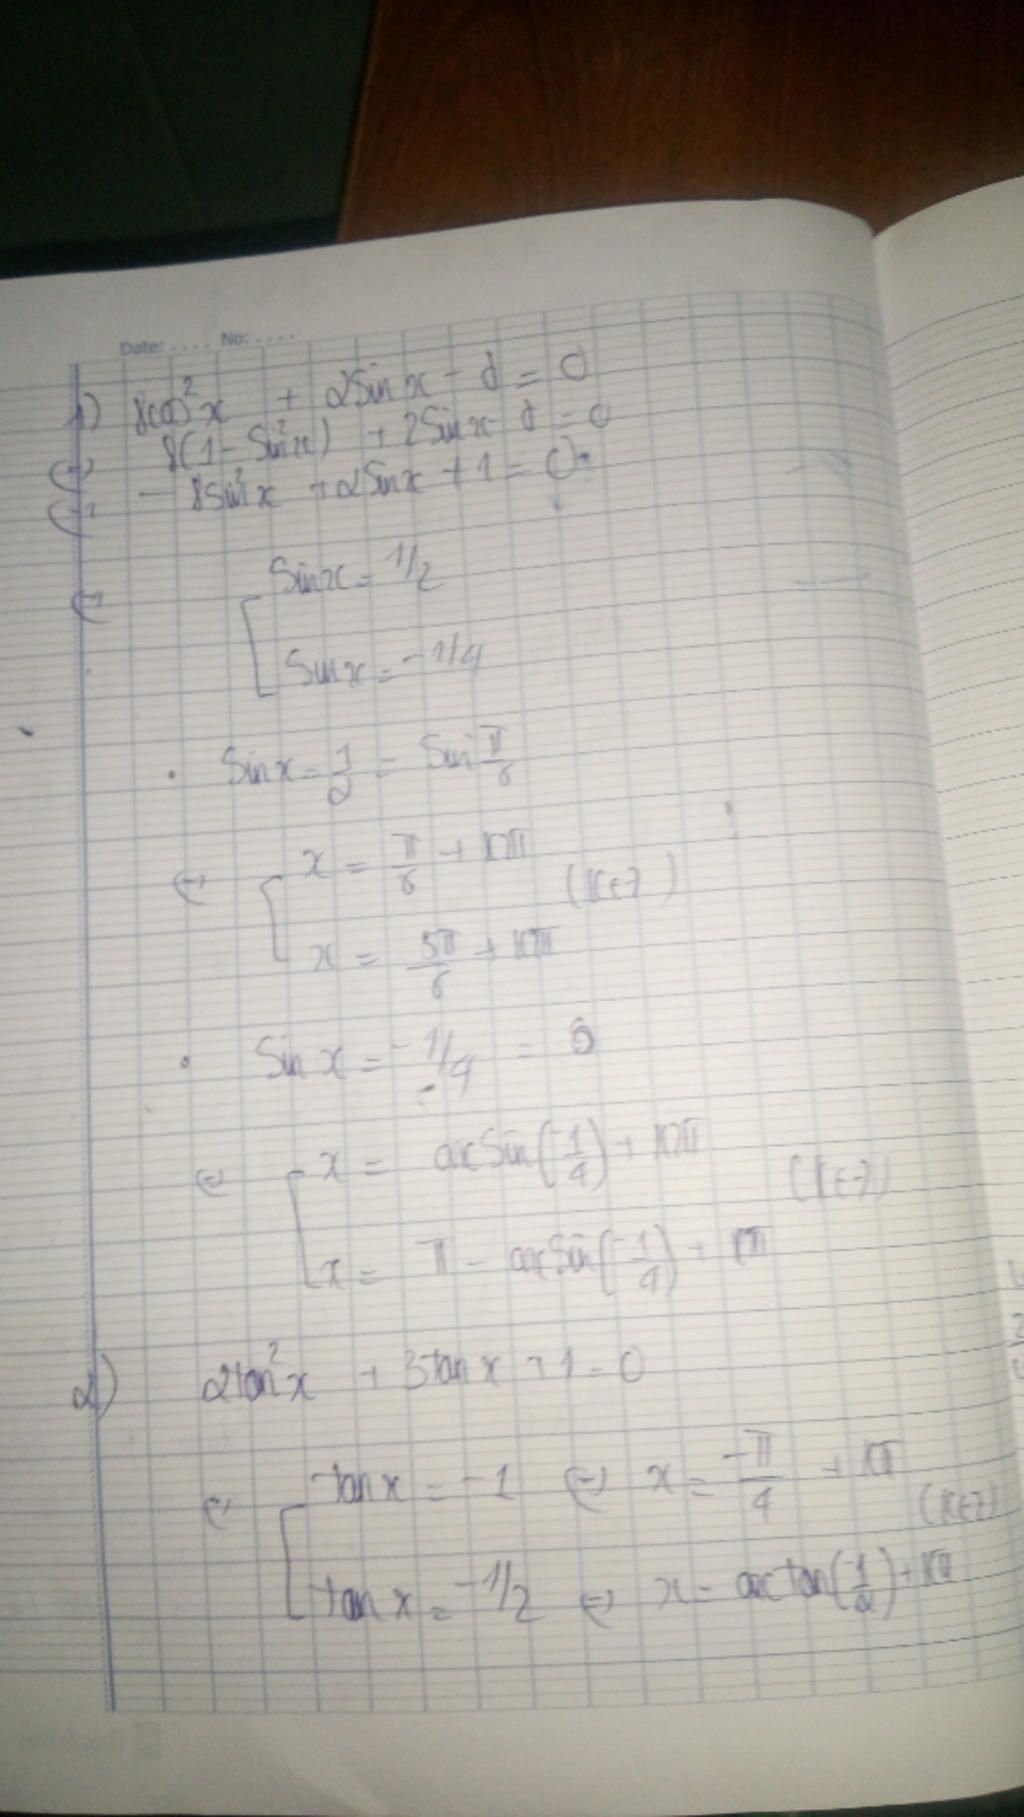 Date: .... No: ....
1) 8cos²x + 2sinx - 7 = 0
⇔ 8(1 - sin²x) + 2sinx - 7 = 0
⇔ - 8sin²x + 2sinx + 1 = 0
⇔ [ sinx = 1/2
sinx = -1/4
• sinx = 1/2 = sin π/6
⇔ [ x = π/6 + k2π
x = 5π/6 + k2π (k∈Z)
• sinx = -1/4
⇔ [ x = arcsin(-1/4) + k2π
x = π - arcsin(-1/4) + kπ (k∈Z)
2) 2tan²x + 3tanx + 1 = 0
⇔ [ tanx = -1 ⇔ x = -π/4 + kπ
tanx = -1/2 ⇔ x = arctan(-1/2) + kπ (k∈Z)